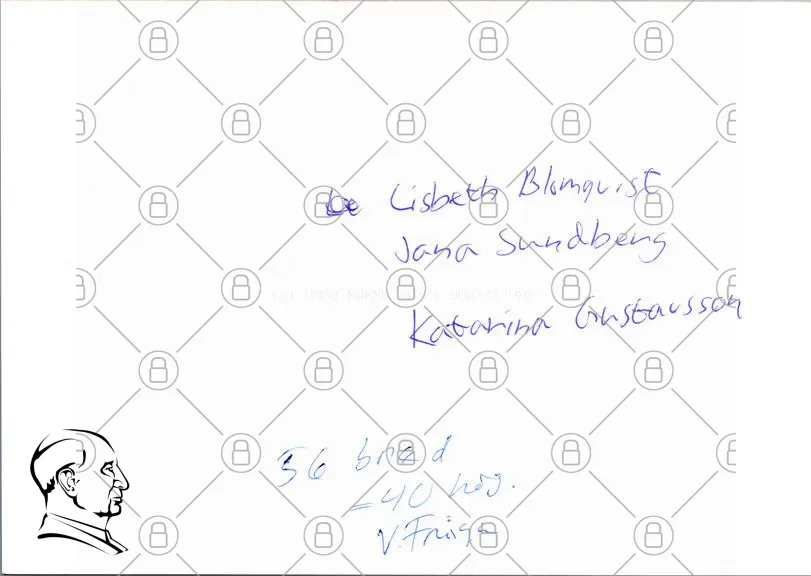 Lisbeth Blomquist
Jana Sundberg
Katarina Gustavsson
56 bred
=40 hög.